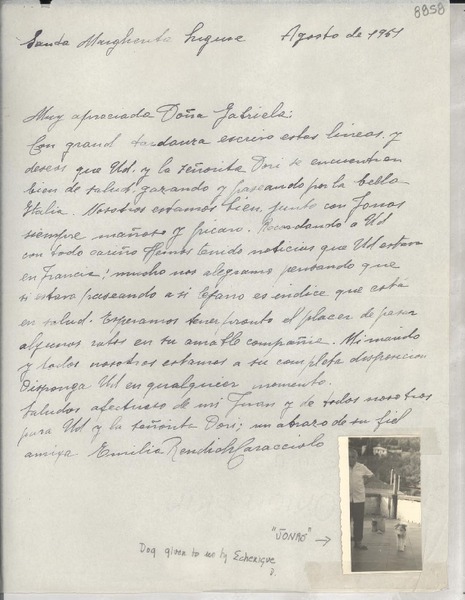 8858
Santa Margherita Ligure Agosto de 1951
Muy apreciada Doña Gabriela:
Con grand tardanza escribo estas lineas. y
deseo que Ud. y la señorita Dori se encuentran
bien de salud, gozando y paseando por la bella
Italia. Nosotros estamos bien, junto con Jonas
siempre mañoso y picaro. Recordando a Ud
con todo cariño Hemos tenido noticias que Ud estava
en Francia; mucho nos alegramo pensando que
si estava paseando a si lejano es indice que está
en salud. Esperamos tener pronto el placer de pasar
algunos ratos en su amable compañia. Mi marido
y todos nosotros estamos a su completa disposicion
Disponga Ud en qualquier momento.
Saludos afectuoso de mi Juan y de todos nosotros
para Ud y la señorita Dori; un abrazo de su fiel
amiga Emilia Rendich Caracciolo
"JONAS" →
Dog given to me by Echenique
D.